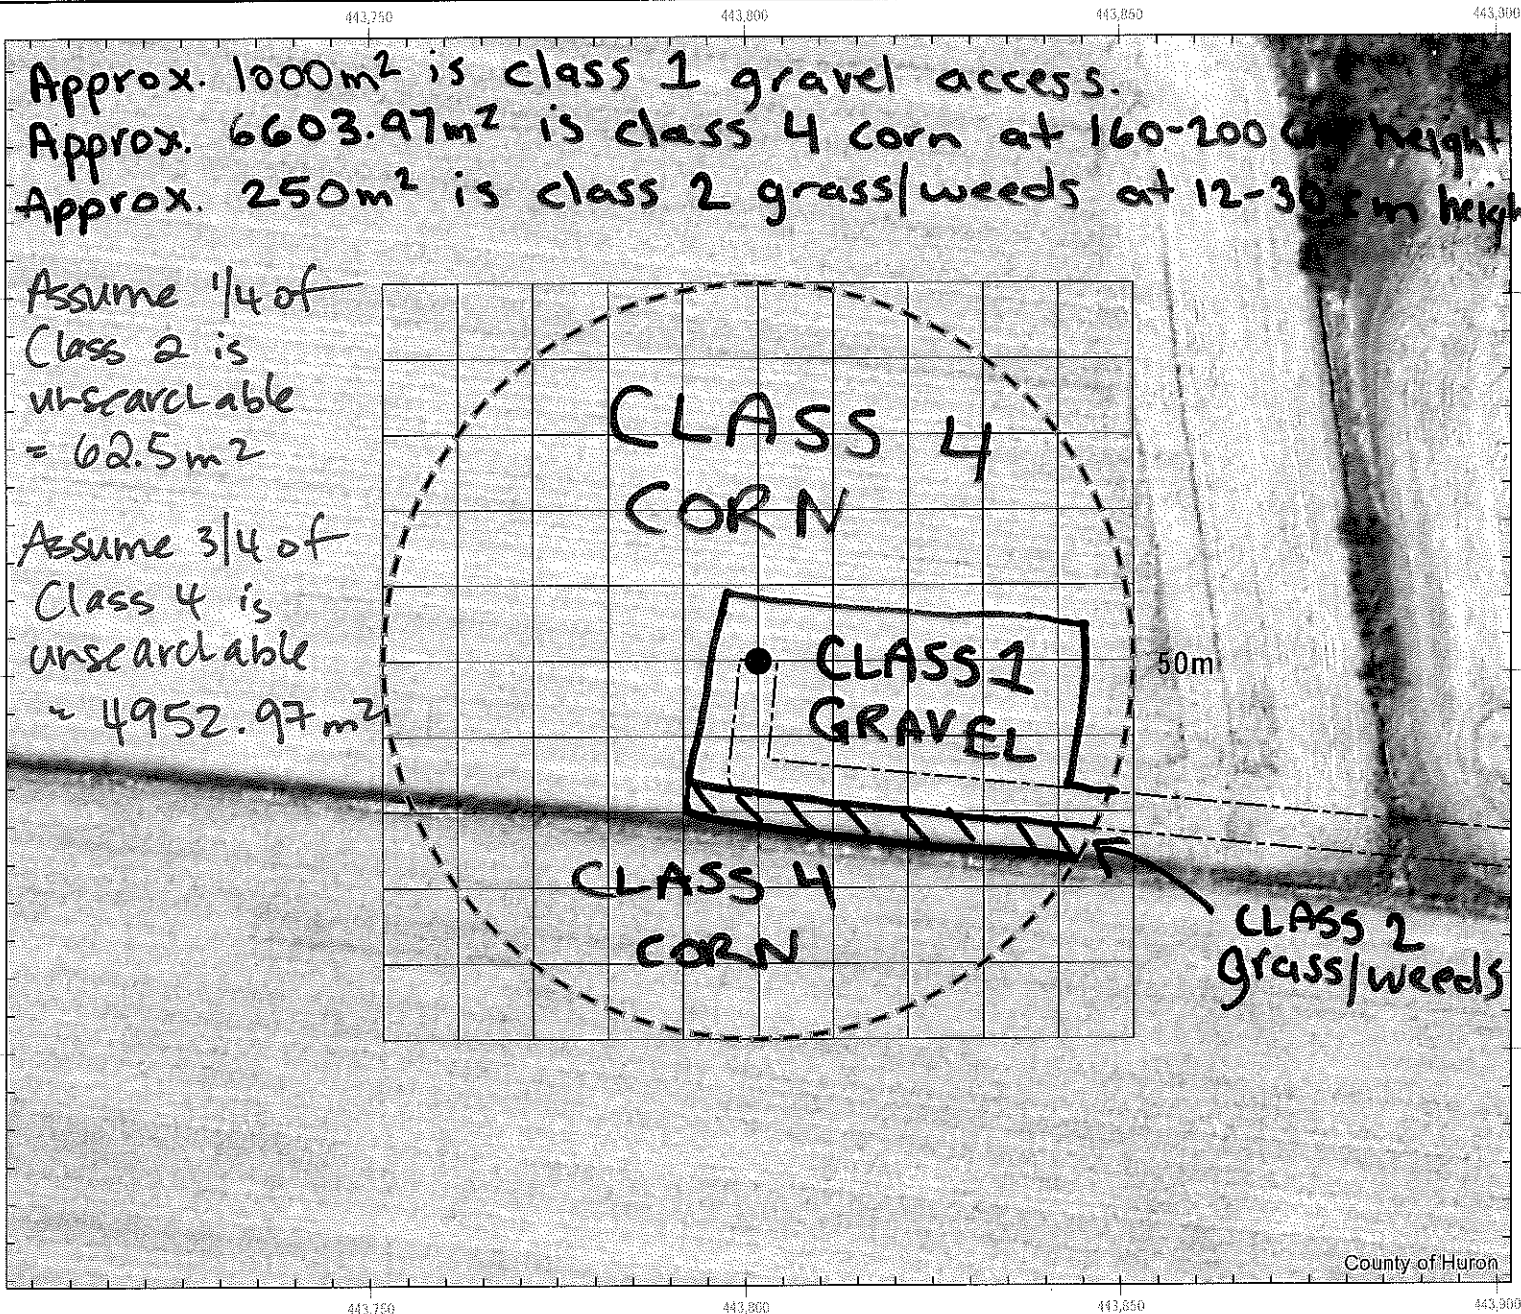 443,750 443,800 443,850 443,900
Approx. 1000m² is class 1 gravel access.
Approx. 6603.97m² is class 4 corn at 160-200 cm height
Approx. 250m² is class 2 grass/weeds at 12-30cm heigh
Assume 1/4 of
Class 2 is
unsearchable
= 62.5m²
Assume 3/4 of
Class 4 is
unsearchable
~ 4952.97m²
CLASS 4
CORN
CLASS 1
GRAVEL
50m
CLASS 4
CORN
CLASS 2
grass/weeds
County of Huron
443,750 443,800 443,850 443,900